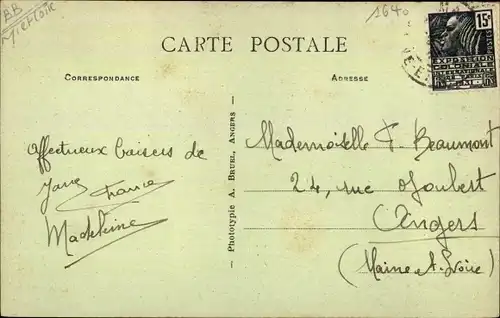 BB
1640
CARTE POSTALE
CORRESPONDANCE
ADRESSE
15c
POSTES
EXPOSITION
COLONIALE
INTERNATIONALE
PARIS
Affectueux baisers de
France
Madeleine
— Phototypie A. BRUEL, ANGERS —
Mademoiselle F. Beaumont
24, rue Joubert
Angers
(Maine & Loire)